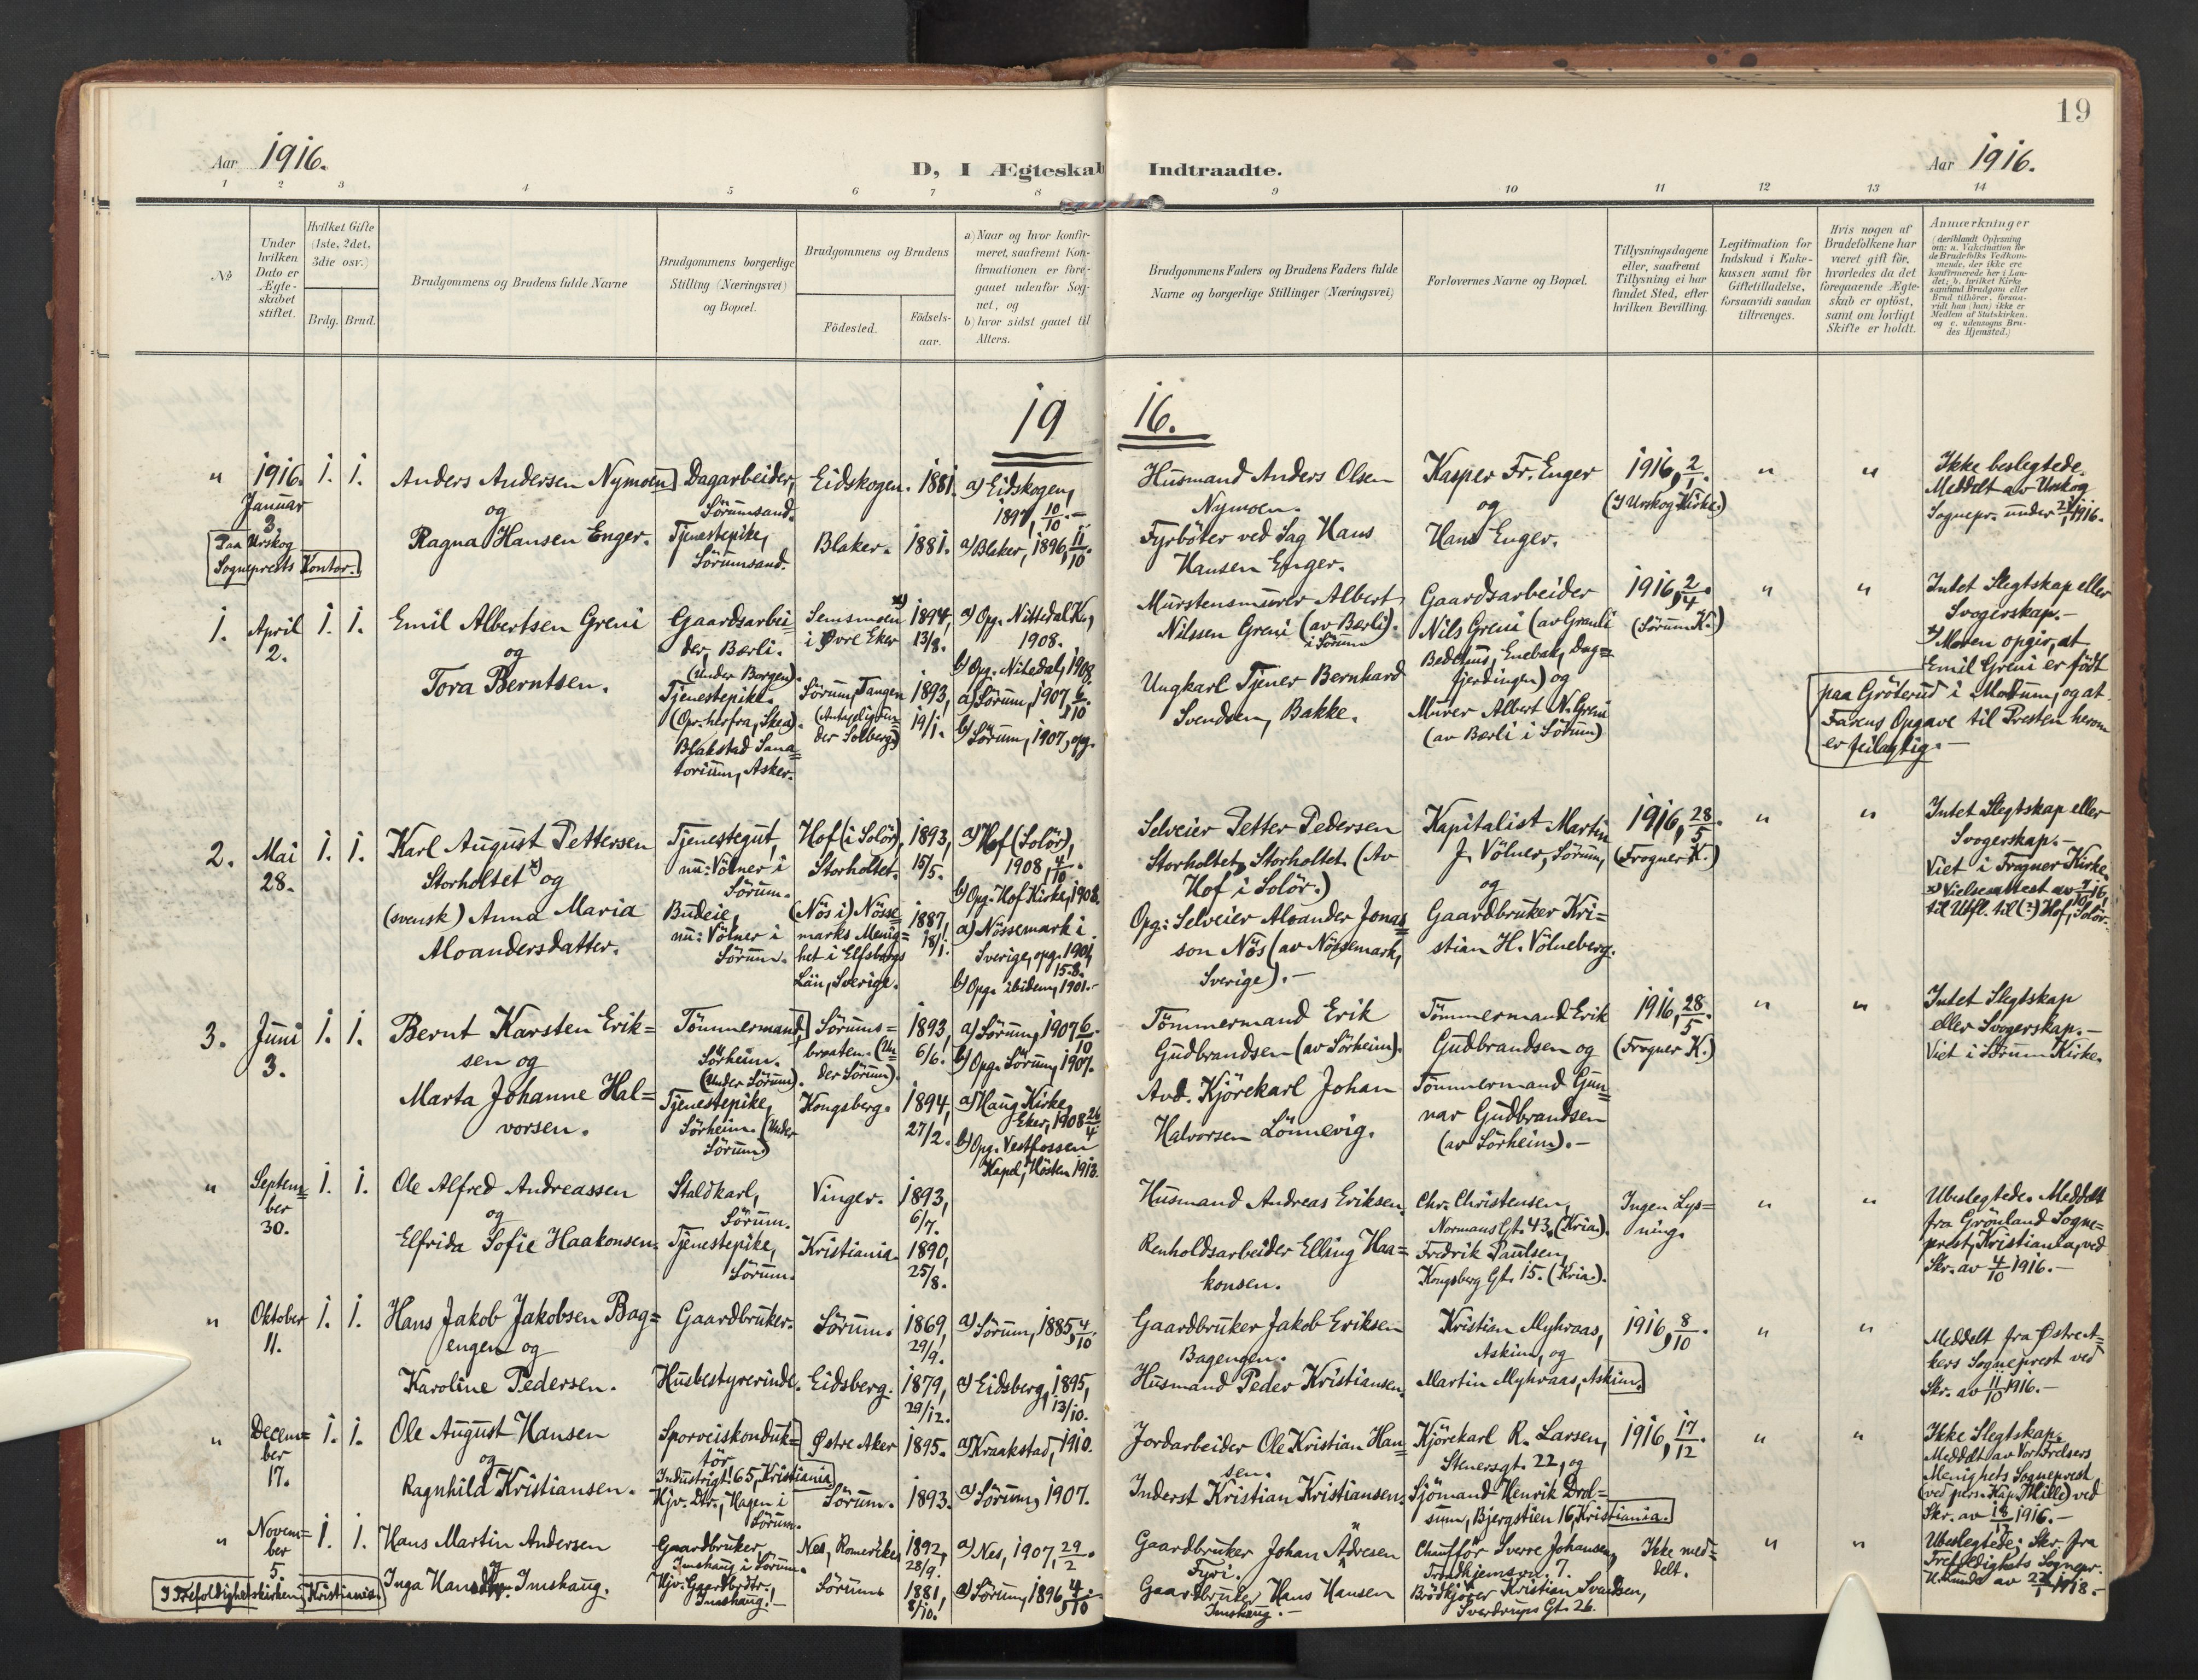 19
Aar 1916.
D, I Ægteskab Indtraadte.
Aar 1916.
1 2 3 4 5 6 7 8 9 10 11 12 13 14
№
Under hvilken Dato er Ægteskabet stiftet.
Hvilket Gifte (1ste, 2det, 3die osv.)
Brdg. Brud.
Brudgommens og Brudens fulde Navne
Brudgommens borgerlige Stilling (Næringsvei) og Bopæl.
Brudgommens og Brudens
Födested.
Födsels-aar.
a) Naar og hvor konfirmeret, saafremt Konfirmationen er foregaaet udenfor Sognet, og
b) hvor sidst gaaet til Alters.
Brudgommens Faders og Brudens Faders fulde Navne og borgerlige Stillinger (Næringsvei)
Forlovernes Navne og Bopæl.
Tillysningsdagene eller, saafremt Tillysning ei har fundet Sted, efter hvilken Bevilling.
Legitimation for Indskud i Enkekassen samt for Giftetilladelse, forsaavidt saadan tiltrænges.
Hvis nogen af Brudefolkene har været gift för, hvorledes da det foregaaende Ægteskab er oplöst, samt om lovligt Skifte er holdt.
Anmærkninger
(deriblandt Oplysning om: a. Vakcination for de Brudefolks Vedkommende, der ikke ere konfirmerede her i Landet; b. hvilket Kirkesamfund Brudgom eller Brud tilhörer, forsaavidt han (hun) ikke er Medlem af Statskirken. og c. udensogns Brudes Hjemsted.)
19 16.
" 1916. Januar 3. 1. 1.
Paa Urskog Sogneprests Kontor.
Anders Andersen Nymoen
og
Ragna Hansen Enger.
Dagarbeider, Sörumsand.
Tjenestepike, Sörumsand.
Eidskogen. 1881. a) Eidskogen, 1897, 10/10.-
Blaker. 1881. a) Blaker, 1896, 11/10.
Husmand Anders Olsen Nymoen.
Fyrböter ved Sag Hans Hansen Enger.
Kasper Fr. Enger
og
Hans Enger.
1916, 2/1. (I Urskog Kirke.)
" "
Ikke beslegtede. Meddelt av Urskog Sognepr. under 1916.
1. April 2. 1. 1.
Emil Albertsen Greni
og
Tora Berntsen.
Gaardsarbeider, Bærli. (Under Borgen).
Tjenestepike. (Opr. herfra, Skea). Blakstad Sanatorium, Asker.
Semsmoen x) i Øvre Eker 1894, 13/8.
Sörum, Tangen (Antagelig under Solberg) 1893, 19/1.
a) Opg. Nittedal K., 1908.
b) Opg. Nitedal, 1908.
a) Sörum, 1907, 6/10
b) Sörum, 1907, opg.
Murstensmurer Albert Nilssen Greni (av Bærli). i Sörum
Ungkarl Tjener Bernhard Svendsen, Bakke.
Gaardsarbeider Nils Greni (av Granli Bedehus, Enebak, Dagfjerdingen) og
Murer Albert N. Greni (av Bærli i Sörum)
1916, 2/4. (Sörum K.)
" "
Intet Slegtskap eller Svogerskap.-
x) Moren opgir, at Emil Greni er födt paa Gröterud i Modum, og at Farens Opgave til Presten herom er feilagtig.-
2. Mai 28. 1. 1.
Karl August Pettersen Storholtet x) og
(svensk) Anna Maria Aloandersdatter.
Tjenestegut, nu: Völner i Sörum.
Budeie, nu: Völner i Sörum.
Hof (i Solör), Storholtet. 1893, 15/5.
(Nös i) Nössemarks Menighet i Elfsborgs Län, Sverige. 1887, 18/1.
a) Hof (Solör), 1908, 4/10.
b) Opg. Hof Kirke, 1908.
a) Nössemark i Sverige, opg. 1901, 15.8.
b) Opg. ibidem, 1901.-
Selveier Petter Pedersen Storholtet, Storholtet (Av Hof i Solör.)
Opg: Selveier Aloander Jonasson Nös (av Nössemark, Sverige).-
Kapitalist Martin J. Völner, Sörum,
og
Gaardbruker Kristian H. Völneberg.
1916, 28/5. (Frogner K.)
" "
Intet Slegtskap eller Svogerskap.-
Viet i Frogner Kirke.
x) Vielsesattest av 16, til Utfl. til Hof, Solör.
3. Juni 3. 1. 1.
Bernt Karsten Eriksen og
Marta Johanne Halvorsen.
Tömmermand, Sörheim. (Under Sörum).
Tjenestepike, Sörheim. (Under Sörum)
Sörumsbraaten. (Under Sörum). 1893, 6/6.
Kongsberg. 1894, 27/2.
a) Sörum, 1907 6/10.
b) Opg. Sörum, 1907.
a) Haug Kirke, Eker, 1908 26/4
b) Opg. Vestfossen Kapel, Hösten 1913.
Tömmermand Erik Gudbrandsen (av Sörheim).
Avd. Kjörekarl Johan Halvorsen Lönnevig.
Tömmermand Erik Gudbrandsen og
Tömmermand Gunnar Gudbrandsen (av Sörheim).-
1916, 28/5. (Frogner K.)
" "
Intet Slegtskap eller Svogerskap.-
Viet i Sörum Kirke.
" September 30. 1. 1.
Ole Alfred Andreassen
og
Elfrida Sofie Haakonsen.
Staldkarl, Sörum.
Tjenestepike, Sörum.
Vinger. 1893, 6/7.
Kristiania. 1890, 25/8.
Husmand Andreas Eriksen.
Renholdsarbeider Elling Haakonsen.
Chr. Christensen, Normans Gt. 43. (Kria).
Fredrik Paulsen, Kongsberg Gt. 15. (Kria).
Ingen Lysning.
" "
Ubeslegtede. Meddelt fra Grönland Sogneprest, Kristiania, ved Skr. av 4/10 1916.-
" Oktober 11. 1. 1.
Hans Jakob Jakobsen Bagengen og
Karoline Pedersen.
Gaardbruker.
Husbestyrerinde.
Sörum. 1869, 29/9. a) Sörum, 1885, 4/10.
Eidsberg. 1879, 29/12. a) Eidsberg, 1895, 13/10.
Gaardbruker Jakob Eriksen Bagengen.
Husmand Peder Kristiansen.
Kristian Myhraas, Askim, og
Martin Myhraas, Askim.
1916, 8/10.
" "
Meddelt fra Østre Akers Sogneprest ved Skr. av 11/10 1916.-
" December 17. 1. 1.
Ole August Hansen
og
Ragnhild Kristiansen.
Sporveiskonduktör Industrigt. 65, Kristiania
Hjv. Dtr., Hagen i Sörum.
Østre Aker 1895. a) Kraakstad, 1910.
Sörum. 1893. a) Sörum, 1907.
Jordarbeider Ole Kristian Hansen.
Inderst Kristian Kristiansen.
Kjörekarl R. Larsen, Stenersgt. 22, og
Sjömand Henrik Drolsum, Bjergstien 16, Kristiania.
1916, 17/12.
" "
Ikke Slegtskap. Meddelt av Vor Frelsers Menighets Sogneprest (ved pers. Kap. Mille) ved Skr. av 1916.-
" November 5. 1. 1.
I Trefoldighetskirken, Kristiania.
Hans Martin Andersen
og
Inga Hansdtr. Imshaug.
Gaardbruker, Imshaug i Sörum.
Hjv. Gaardbrdtr., Imshaug.-
Nes, Romerike, 1892, 28/9. a) Nes, 1907, 29/2.
Sörum. 1881, 8/10. a) Sörum, 1896, 4/10.-
Gaardbruker Johan Fyri.
Gaardbruker Hans Hansen Imshaug.-
Chaufför Sverre Johansen, Trondhjemsvn. 7.
Brödkjörer Kristian Svendsen, Sverdrups Gt. 26.
Ikke meddelt.
" "
Ubeslegtede: Skr. fra Trefoldighets Sognepr. av 1918.-